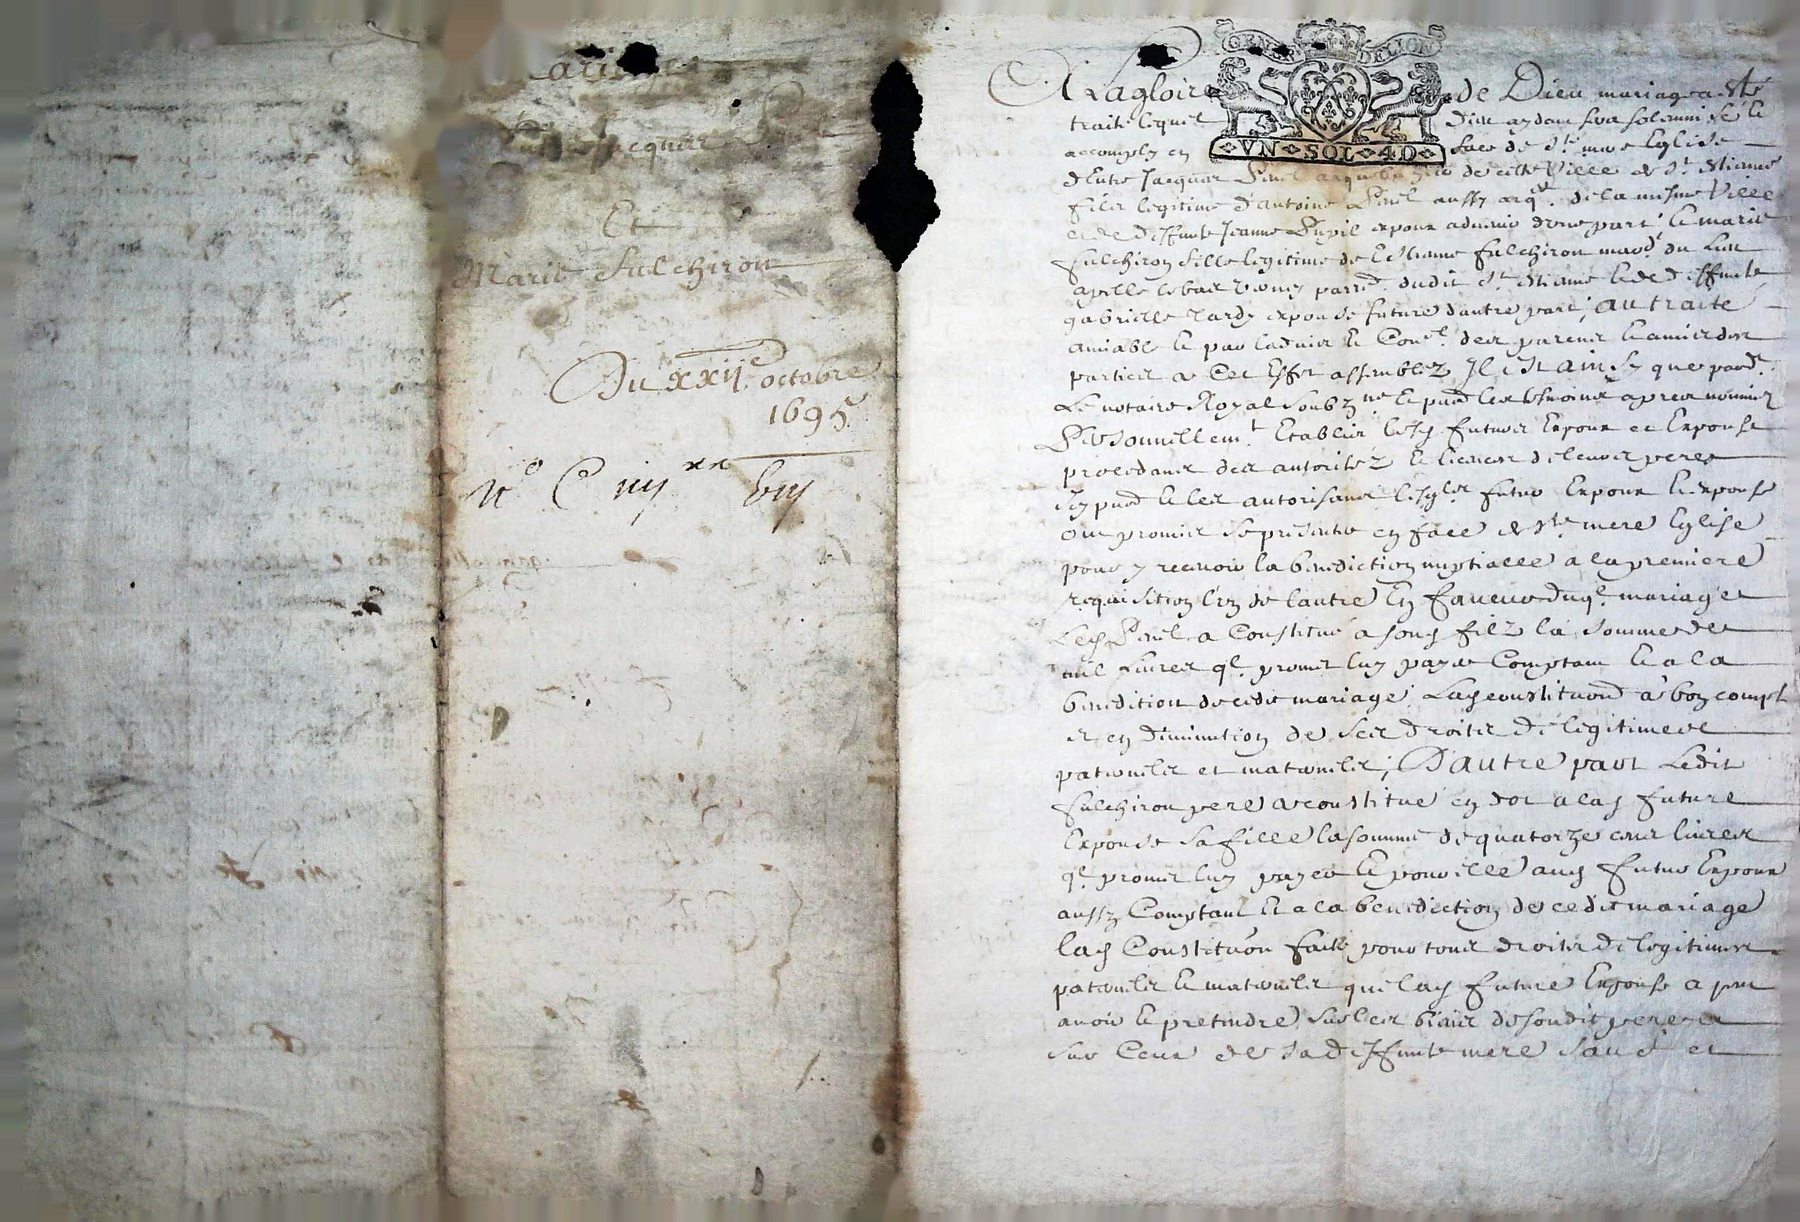 Mariage
Jacques
Et
Marie Fulchiron
Du xxije octobre
1695
GENER DE LION
VN SOL 4 D
A La gloire de Dieu mariage a esté
traité lequel Dieu aydant sera solemnisé et
accomply en face de Ste mere Eglise
d'Entre Jacques Pinel arquebuzier de cette Ville de St Estienne
filz legitime d'antoine Pinel aussy arqr. de la mesme Ville
et de deffunte Jeanne Pupil expoux advenir d'une part, et marie
fulchiron fille legitime de Estienne fulchiron mard. du Lieu
apellé le bas parre. dudit St Estienne et de deffunte
gabrielle Tardy expouse future d'autre part, au traité
amiable et par l'advis et Conel. des parens et amis des
parties a Cet Effet assemblez Il Est ainsy que pard.
Le notaire Royal soubzne et pnt les tesmoins apres nommez
Personnellemt. Establis lesd futurs Expoux et Expouse
procedans des autoritez et licences de leurs peres
Icy pnt et les autorisans lesqls futur Expoux et expouse
ont promis se presenter en face de Ste mere Eglise
pour y recevoir la benediction nuptialle a la premiere
requisition l'un de l'autre En faveur duql mariage
Led Pinel a Constitué a sond filz la somme de
mil Livres ql promet luy payer Comptant et a la
benediction de cedit mariage, Lad constituaon a bon compte
et en diminution de ses droitz de legitimes
paternelz et maternelz, D'autre part Ledit
fulchiron pere a constitué en dot a lad future
Expouse sa fille la somme de quatorze cens livres
ql promet luy payer Et pour elle aud futur Expoux
aussy Comptant Et a la benediction de cedit mariage
lad Constituaon faite pour tous droitz de legitimes
paternelz et maternelz que lad future Expouse a peut
avoir et pretendre sur les biens de sondit pere et
sur Ceux de sa deffunte mere sauf et